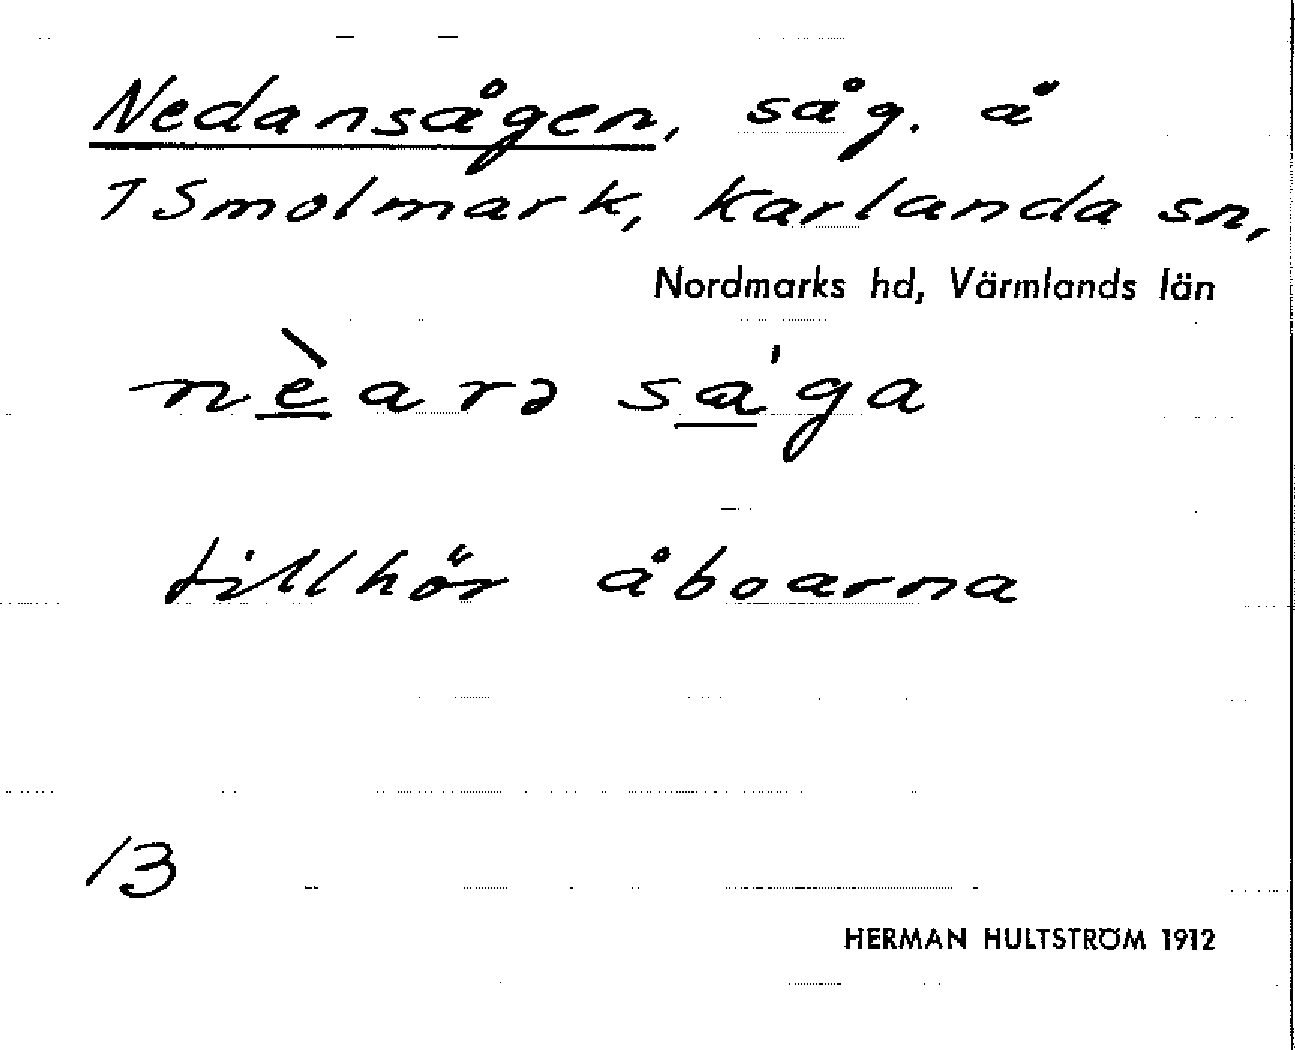 Nedansågen, såg. å
1 Smolmark, Karlanda sn,
Nordmarks hd, Värmlands län
nèarə sa'ga
tillhör åboarna
13
HERMAN HULTSTRÖM 1912